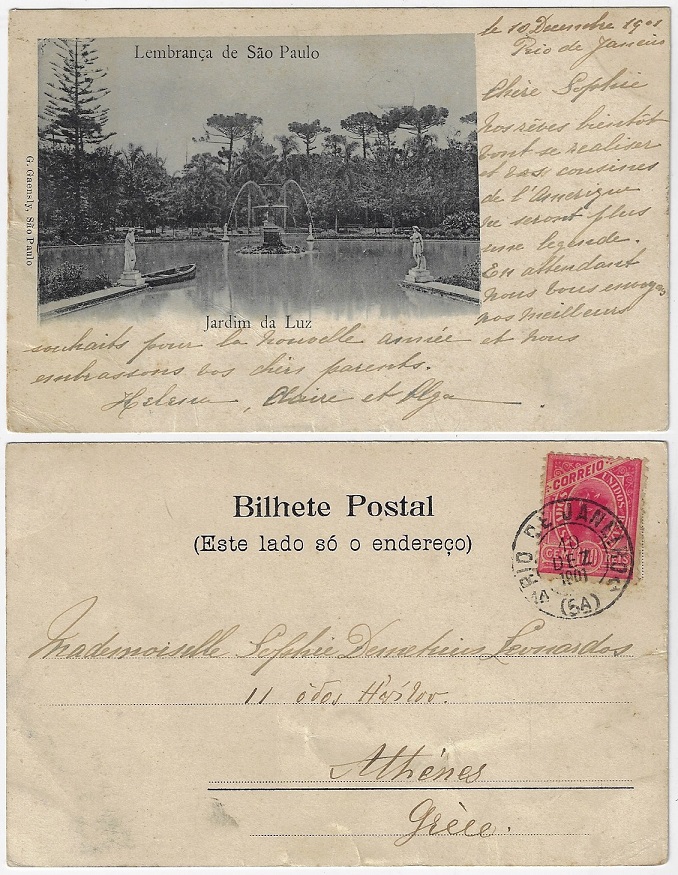 Lembrança de São Paulo
G. Gaensly, São Paulo
Jardim da Luz
le 10 Decembre 1901
Rio de Janeiro
Chère Sophie
Nos rêves bientôt
vont se realiser
et vos cousines
de l'Amerique
ne seront plus
une legende.
En attendant
nous vous envoyons
nos meilleurs
souhaits pour la nouvelle année et nous
embrassons vos chers parents.
Helena, Claire et Olga
Bilhete Postal
(Este lado só o endereço)
CORREIO
UNIDOS
REIS
RIO DE JANEIRO
10
DEZ
1901
(5A)
Mademoiselle Sophie Demetrius Leonardos
11 ὁδος
Athénes
Grèce.